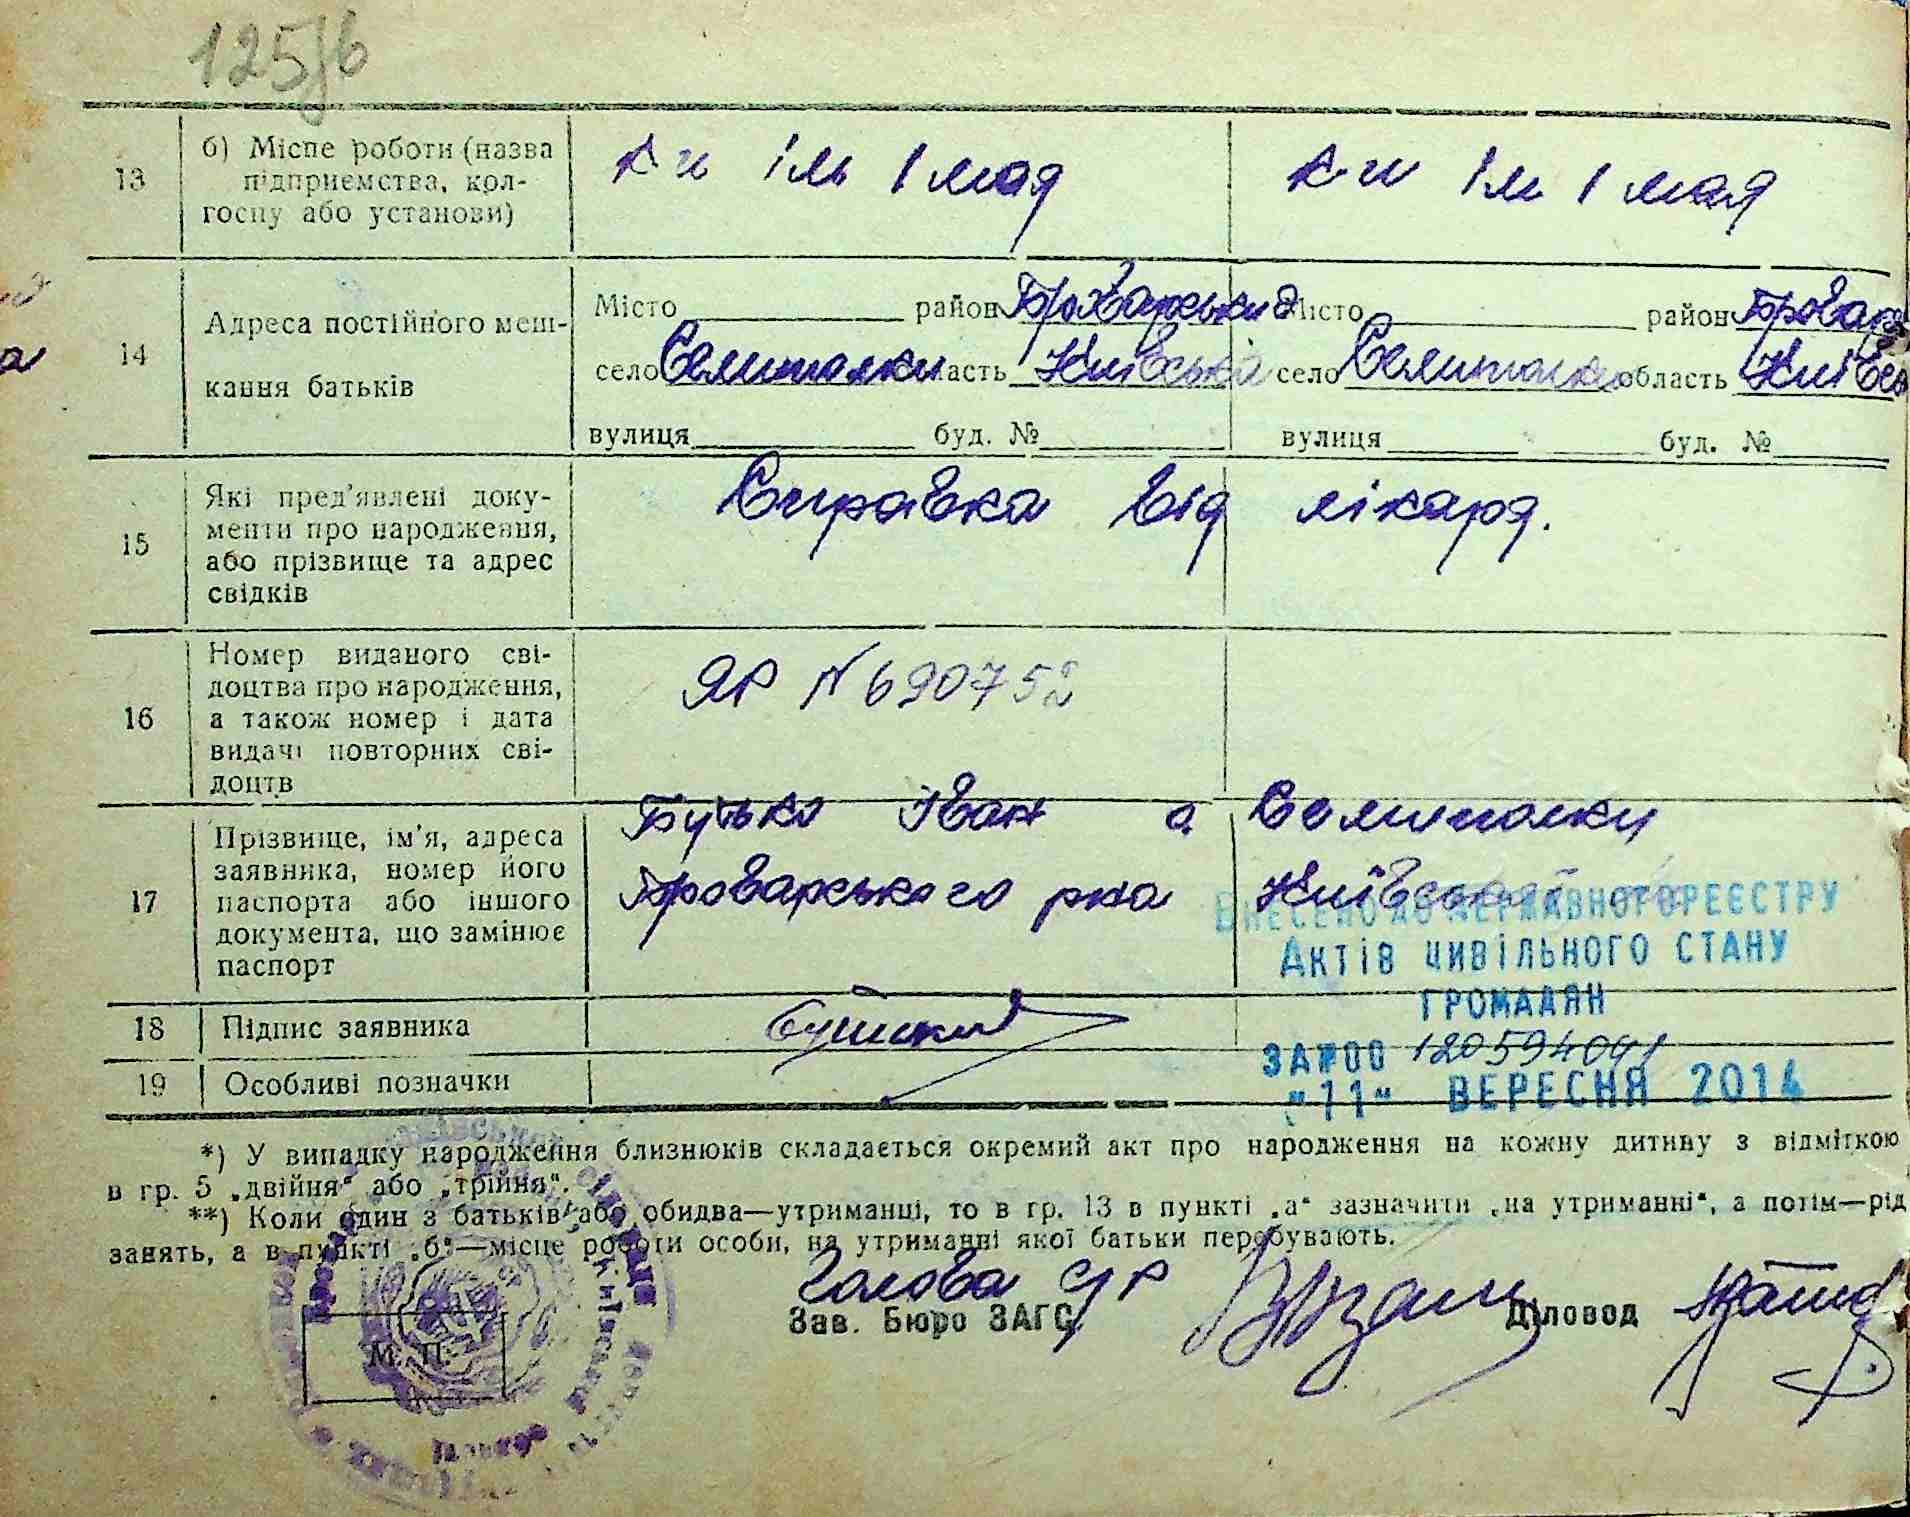 125/б
13 б) Місце роботи (назва підприємства, колгоспу або установи) к-п ім 1 мая к-п ім 1 мая
14 Адреса постійного мешкання батьків
Місто район Броварський Місто район Бровар
село Семиполки область Київська село Семиполки область Київсь
вулиця буд. № вулиця буд. №
15 Які пред'явлені документи про народження, або прізвище та адрес свідків Справка від лікаря.
16 Номер виданого свідоцтва про народження, а також номер і дата видачі повторних свідоцтв ЯР № 690752
17 Прізвище, ім'я, адреса заявника, номер його паспорта або іншого документа, що замінює паспорт
Бутько Іван с. Семиполки
Броварського р-на Київської
ВНЕСЕНО ДО ДЕРЖАВНОГО РЕЄСТРУ
АКТІВ ЦИВІЛЬНОГО СТАНУ
ГРОМАДЯН
18 Підпис заявника
ЗА №00 120594041
19 Особливі позначки
"11" ВЕРЕСНЯ 2014
*) У випадку народження близнюків складається окремий акт про народження на кожну дитину з відміткою
в гр. 5 „двійня" або „трійня".
**) Коли один з батьків або обидва—утриманці, то в гр. 13 в пункті „а" зазначити „на утриманні", а потім—рід
занять, а в пункті „б"—місце роботи особи, на утриманні якої батьки перебувають.
Голова с/р
Зав. Бюро ЗАГС Діловод
М. П.